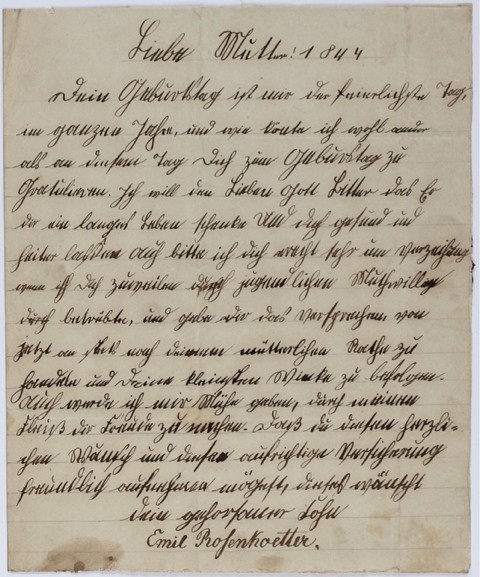 Liebe Mutter! 1844
Dein Geburtstag ist mir der feierlichste Tag,
im ganzen Jahre, und wie konte ich wohl anders
als an diesem Tag Dich zum Geburtstag zu
Gratulieren. Ich will den Lieben Gott Bitten das Er
dir ein langes Leben schenke Und dich gesund und
heiter lassen auch bitte ich dich recht sehr um Verzeihung
wenn ich Dich zuweilen durch jugendlichen Muthwillen
durch betrübte, und gebe dir das Versprechen, von
jetzt an stets nach deinem mütterlichen Rathe zu
handeln und Deine kleinsten Winke zu befolgen.
Auch werde ich mir Mühe geben, durch meinen
Fleiß dir Freude zu machen. Daß du diesen herzli-
chen Wunsch und diese aufrichtige Versicherung
freundlich aufnehmen mögest, dieses wünscht
dein gehorsamer Sohn
Emil Rosenkoetter.